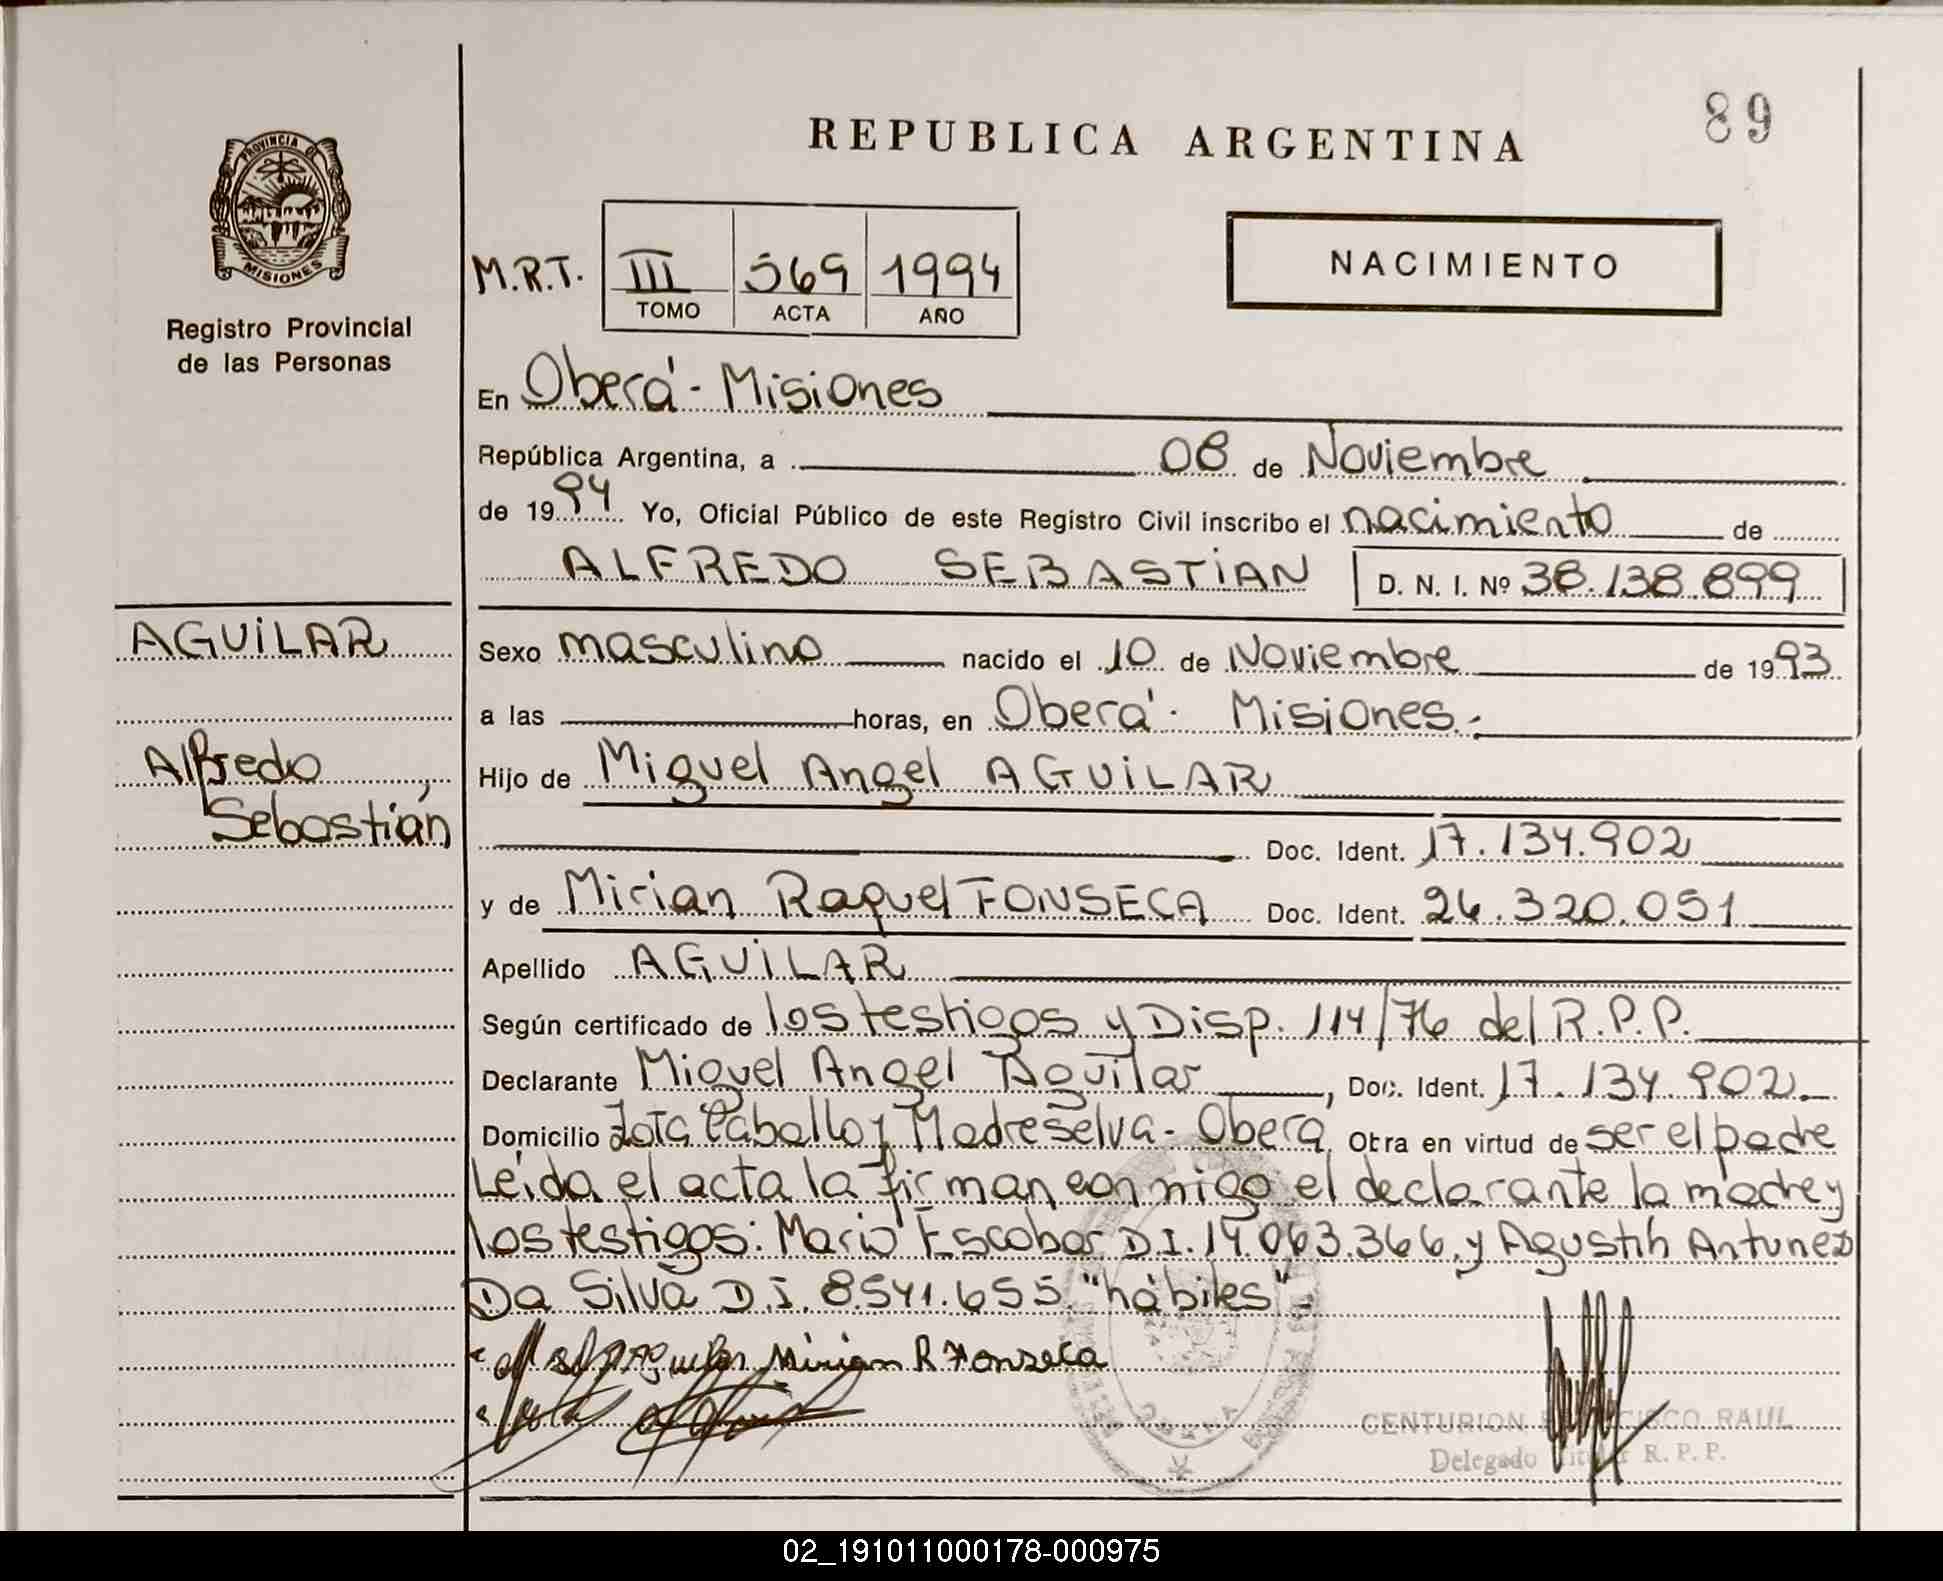 89
REPUBLICA ARGENTINA
PROVINCIA DE
MISIONES
Registro Provincial
de las Personas
M.R.T. III 569 1994
TOMO ACTA AÑO
NACIMIENTO
En Oberá - Misiones
República Argentina, a 08 de Noviembre
de 1994 Yo, Oficial Público de este Registro Civil inscribo el nacimiento de
ALFREDO SEBASTIAN D. N. I. Nº 38.138.899
AGUILAR
Alfredo,
Sebastián
Sexo masculino nacido el 10 de Noviembre de 1993
a las horas, en Oberá - Misiones.-
Hijo de Miguel Angel AGUILAR
Doc. Ident. 17.134.902
y de Mirian Raquel FONSECA Doc. Ident. 24.320.051
Apellido AGUILAR
Según certificado de los testigos y Disp. 114/76 del R.P.P.
Declarante Miguel Angel Aguilar, Doc. Ident. 17.134.902
Domicilio Caballo y Madreselva - Oberá Obra en virtud de ser el padre
Leída el acta la firman conmigo el declarante la madre y
los testigos: Mario Escobar D.I. 14.063.366, y Agustín Antunez
Da Silva D.I. 8.541.655 "hábiles" -
Aguilar Mirian R Fonseca
CENTURION RAUL
Delegado R. P. P.
02_191011000178-000975